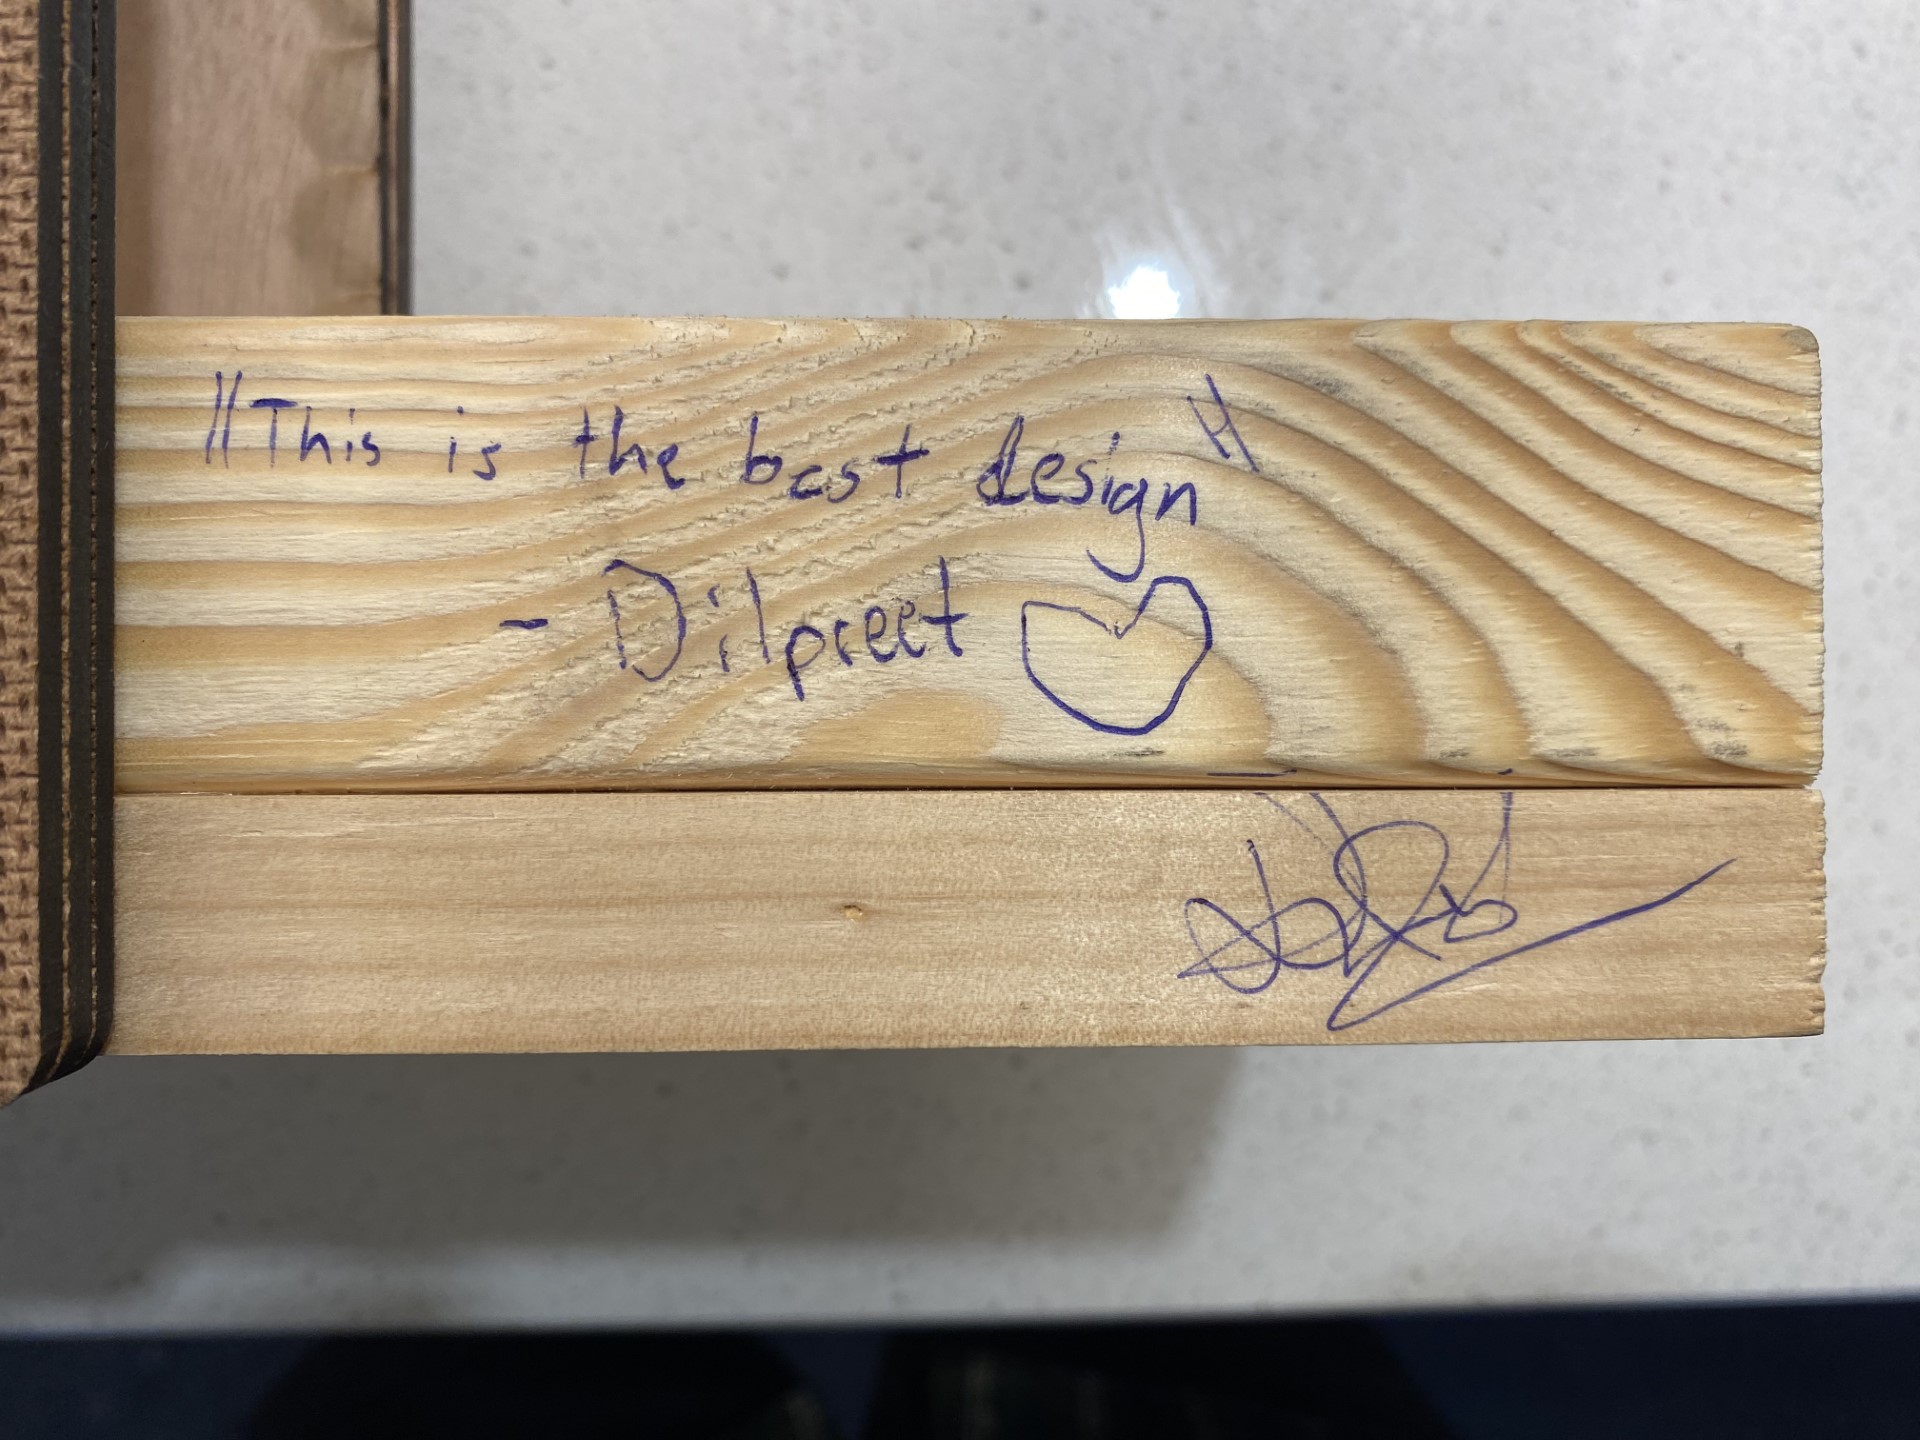 "This is the best design"
- Dilpreet